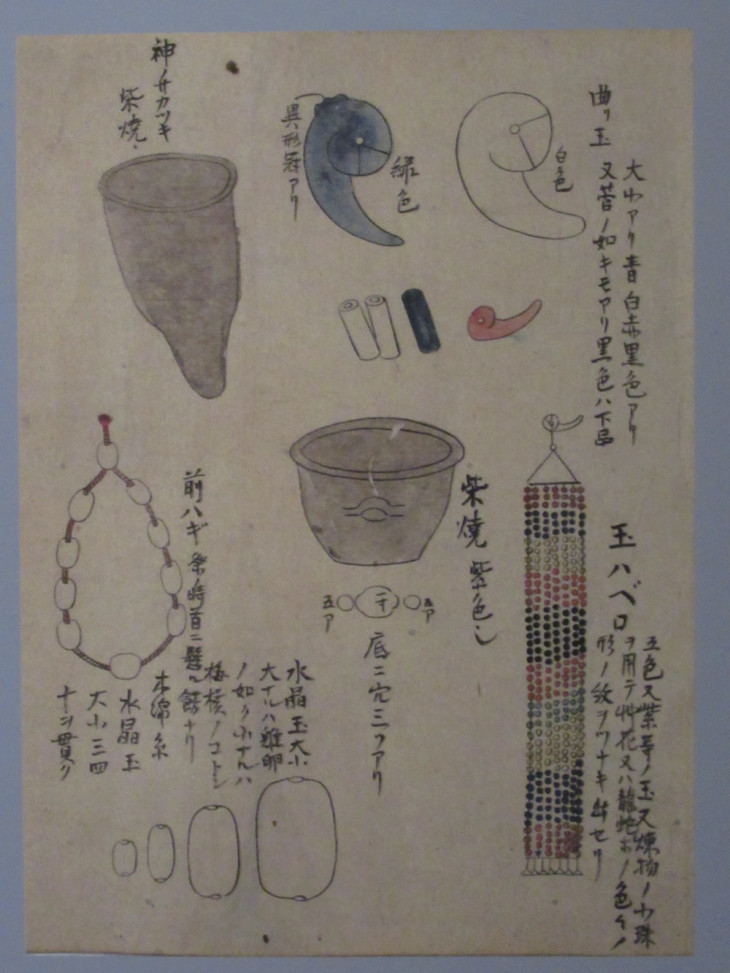 曲リ玉
大小アリ青白赤黒色アリ
又菅ノ如キモアリ黒色ハ下品
白色
緑色
異形冠アリ
神舟カツキ
柴焼
玉ハベロ
五色又紫等ノ玉又煉物ノ小珠
ヲ用テ艸花又ハ龍蛇ホノ色々ノ
形ノ紋ヲツナキ セリ
柴焼 紫色シ
五ア
二寸
五ア
底ニ穴三ツアリ
前ハギ祭時首ニ懸ル飾ナリ
水晶玉大小
大イルハ雞卵
ノ如ク小ナルハ
梅核ノコトシ
木綿糸
水晶玉
大小三四
十ヲ貫ク